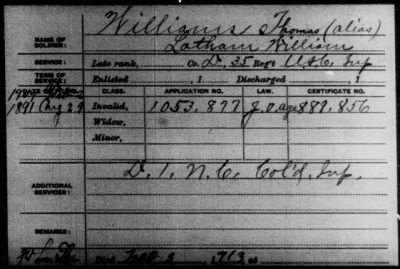 NAME OF SOLDIER: Williams Thomas (alias)
Latham William
SERVICE: Late rank, Co. D. 35 Reg't U.S.C. Inf
TERM OF SERVICE: Enlisted , 1 Discharged , 1
DATE OF FILING. CLASS. APPLICATION NO. LAW. CERTIFICATE NO.
1891 Aug 29 Invalid, 1053.877 889.856
Widow,
Minor,
ADDITIONAL SERVICES: D. 1, N.C. Col'd. Inf.
REMARKS:
Died 2 , 1913 at